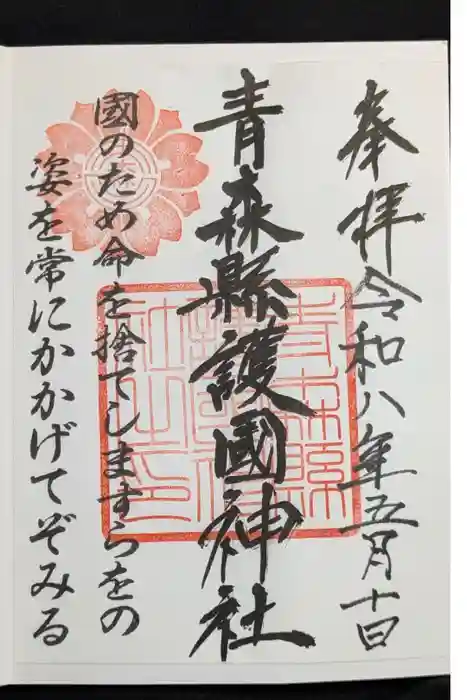 奉拝令和八年五月十日
青森縣護國神社
國のため命を捨てしますらをの
姿を常にかかげてぞみる
青森縣護國神社之印